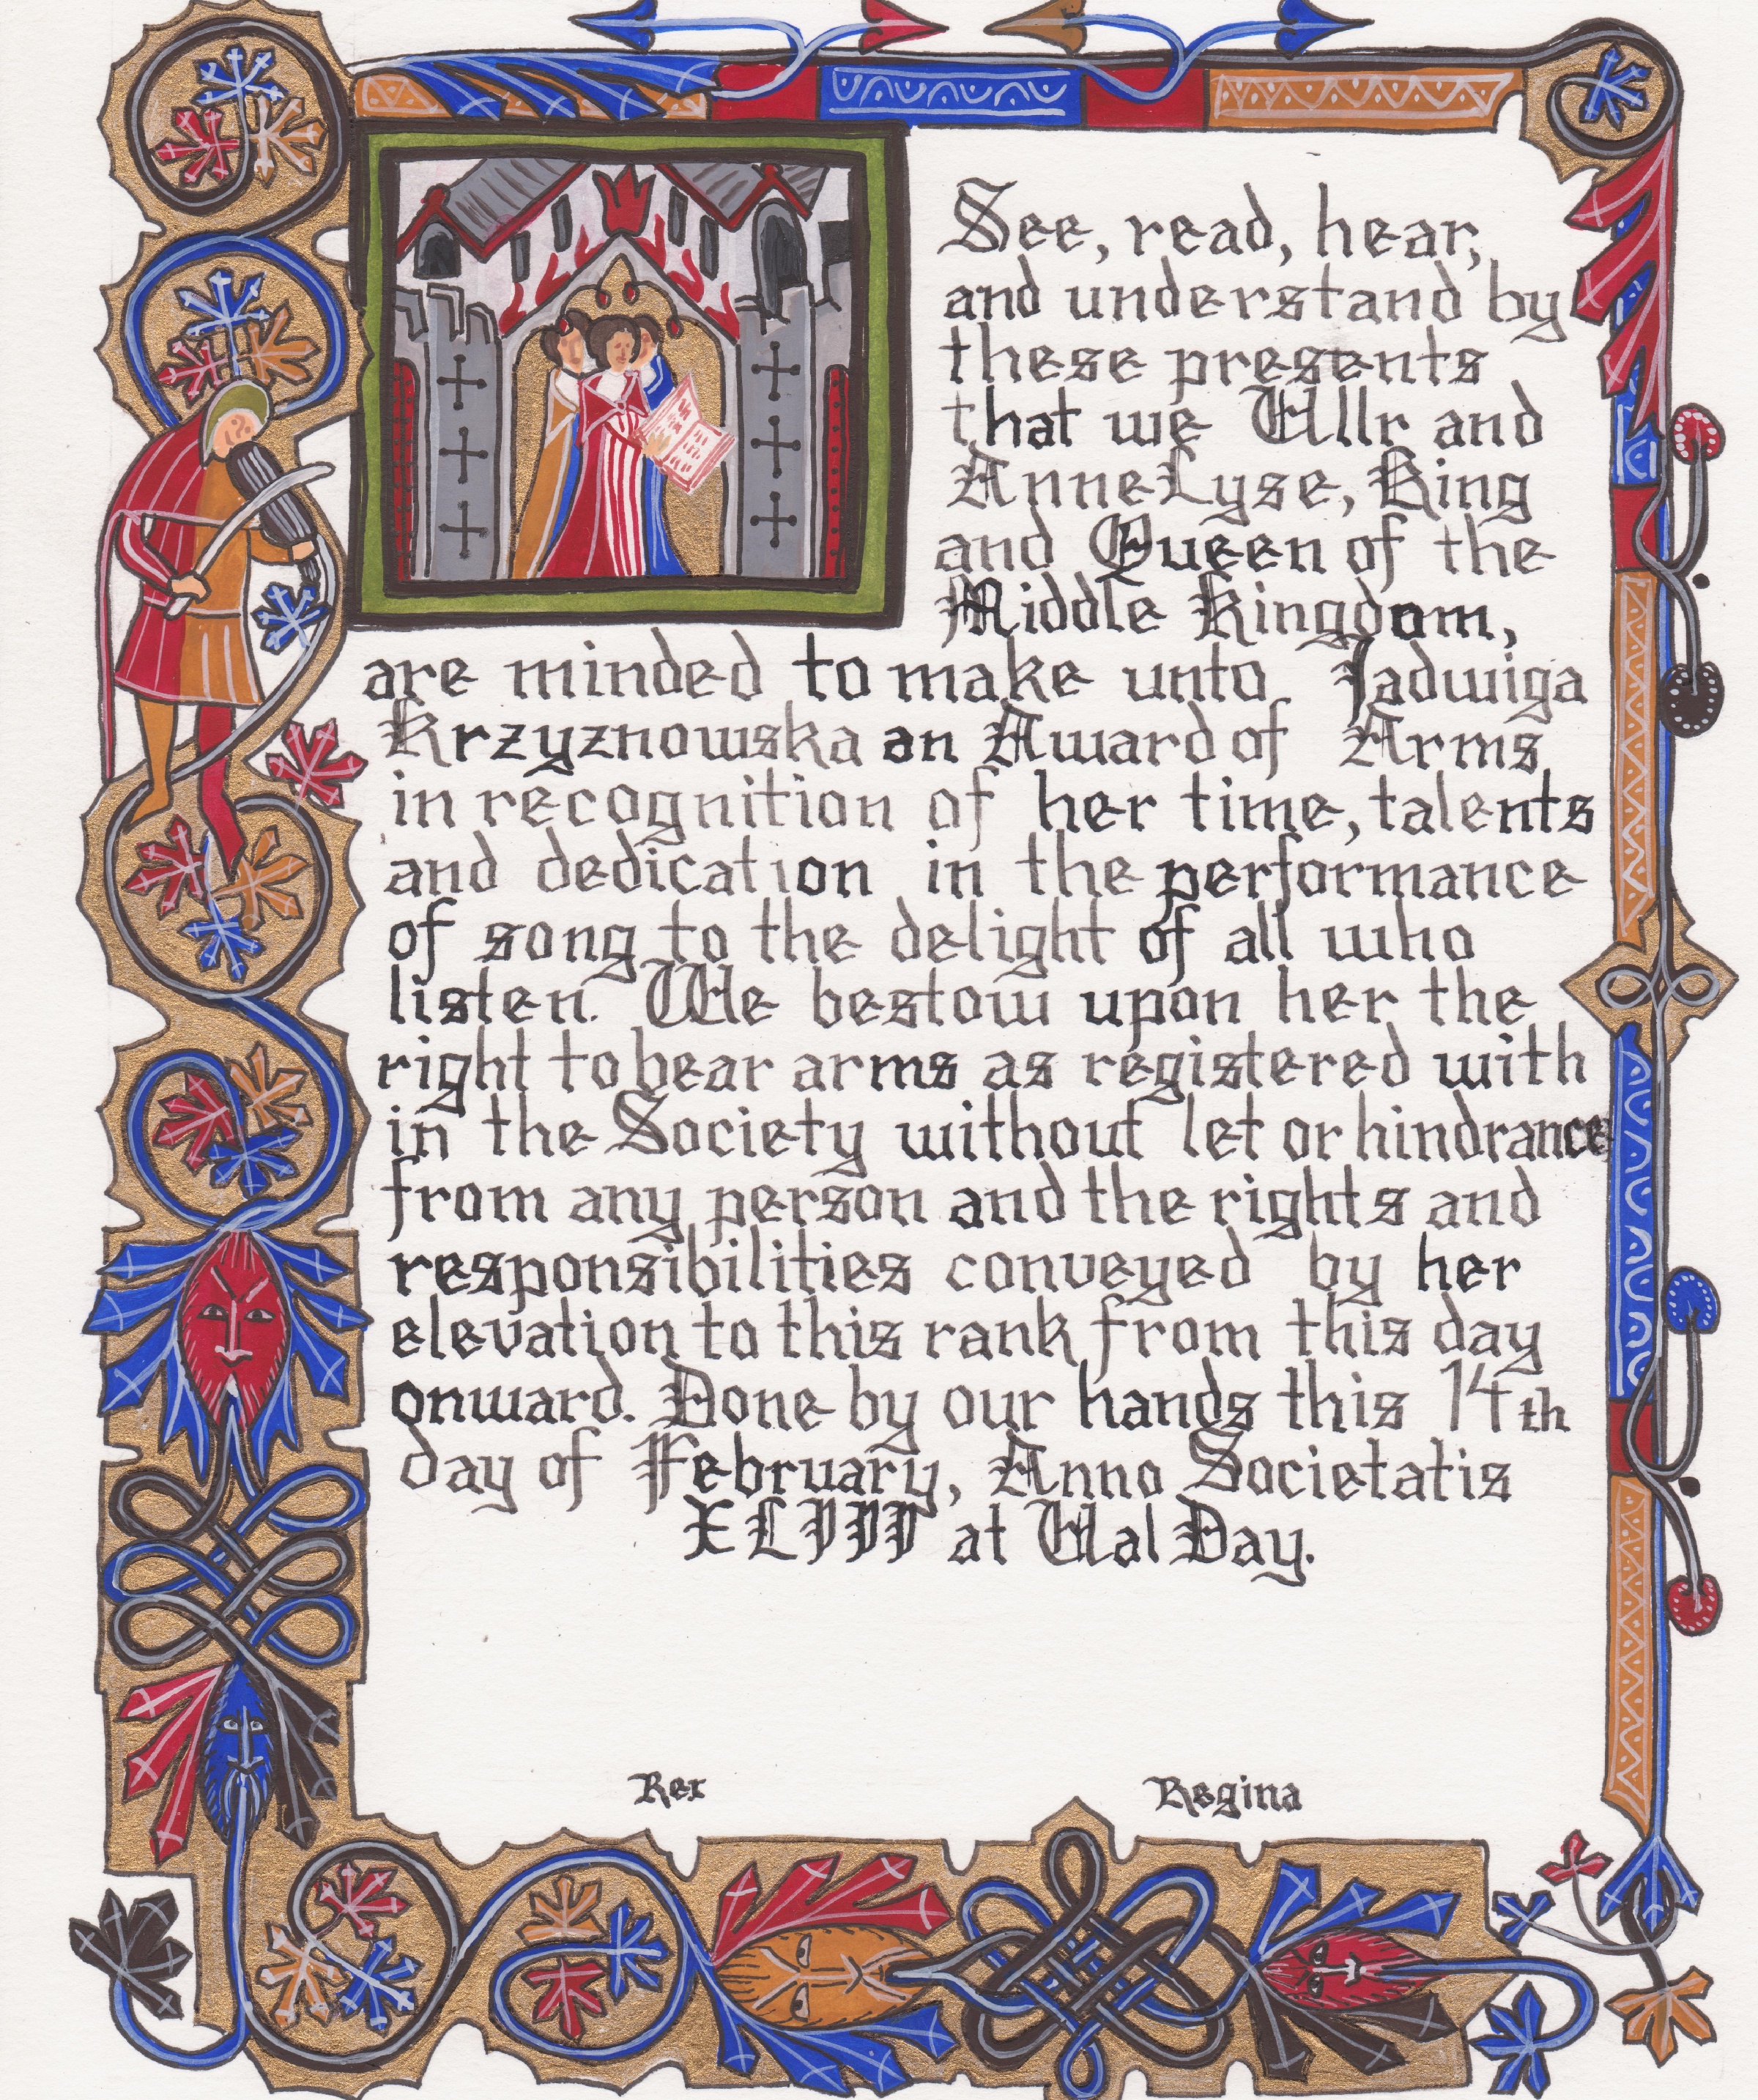 See, read, hear,
and understand by
these presents
that we Ullr and
AnneLyse, King
and Queen of the
Middle Kingdom,
are minded to make unto Jadwiga
Krzyznowska an Award of Arms
in recognition of her time, talents
and dedication in the performance
of song to the delight of all who
listen. We bestow upon her the
right to bear arms as registered with
in the Society without let or hindrance
from any person and the rights and
responsibilities conveyed by her
elevation to this rank from this day
onward. Done by our hands this 14th
day of February, Anno Societatis
XLIII at Val Day.
Rex Regina